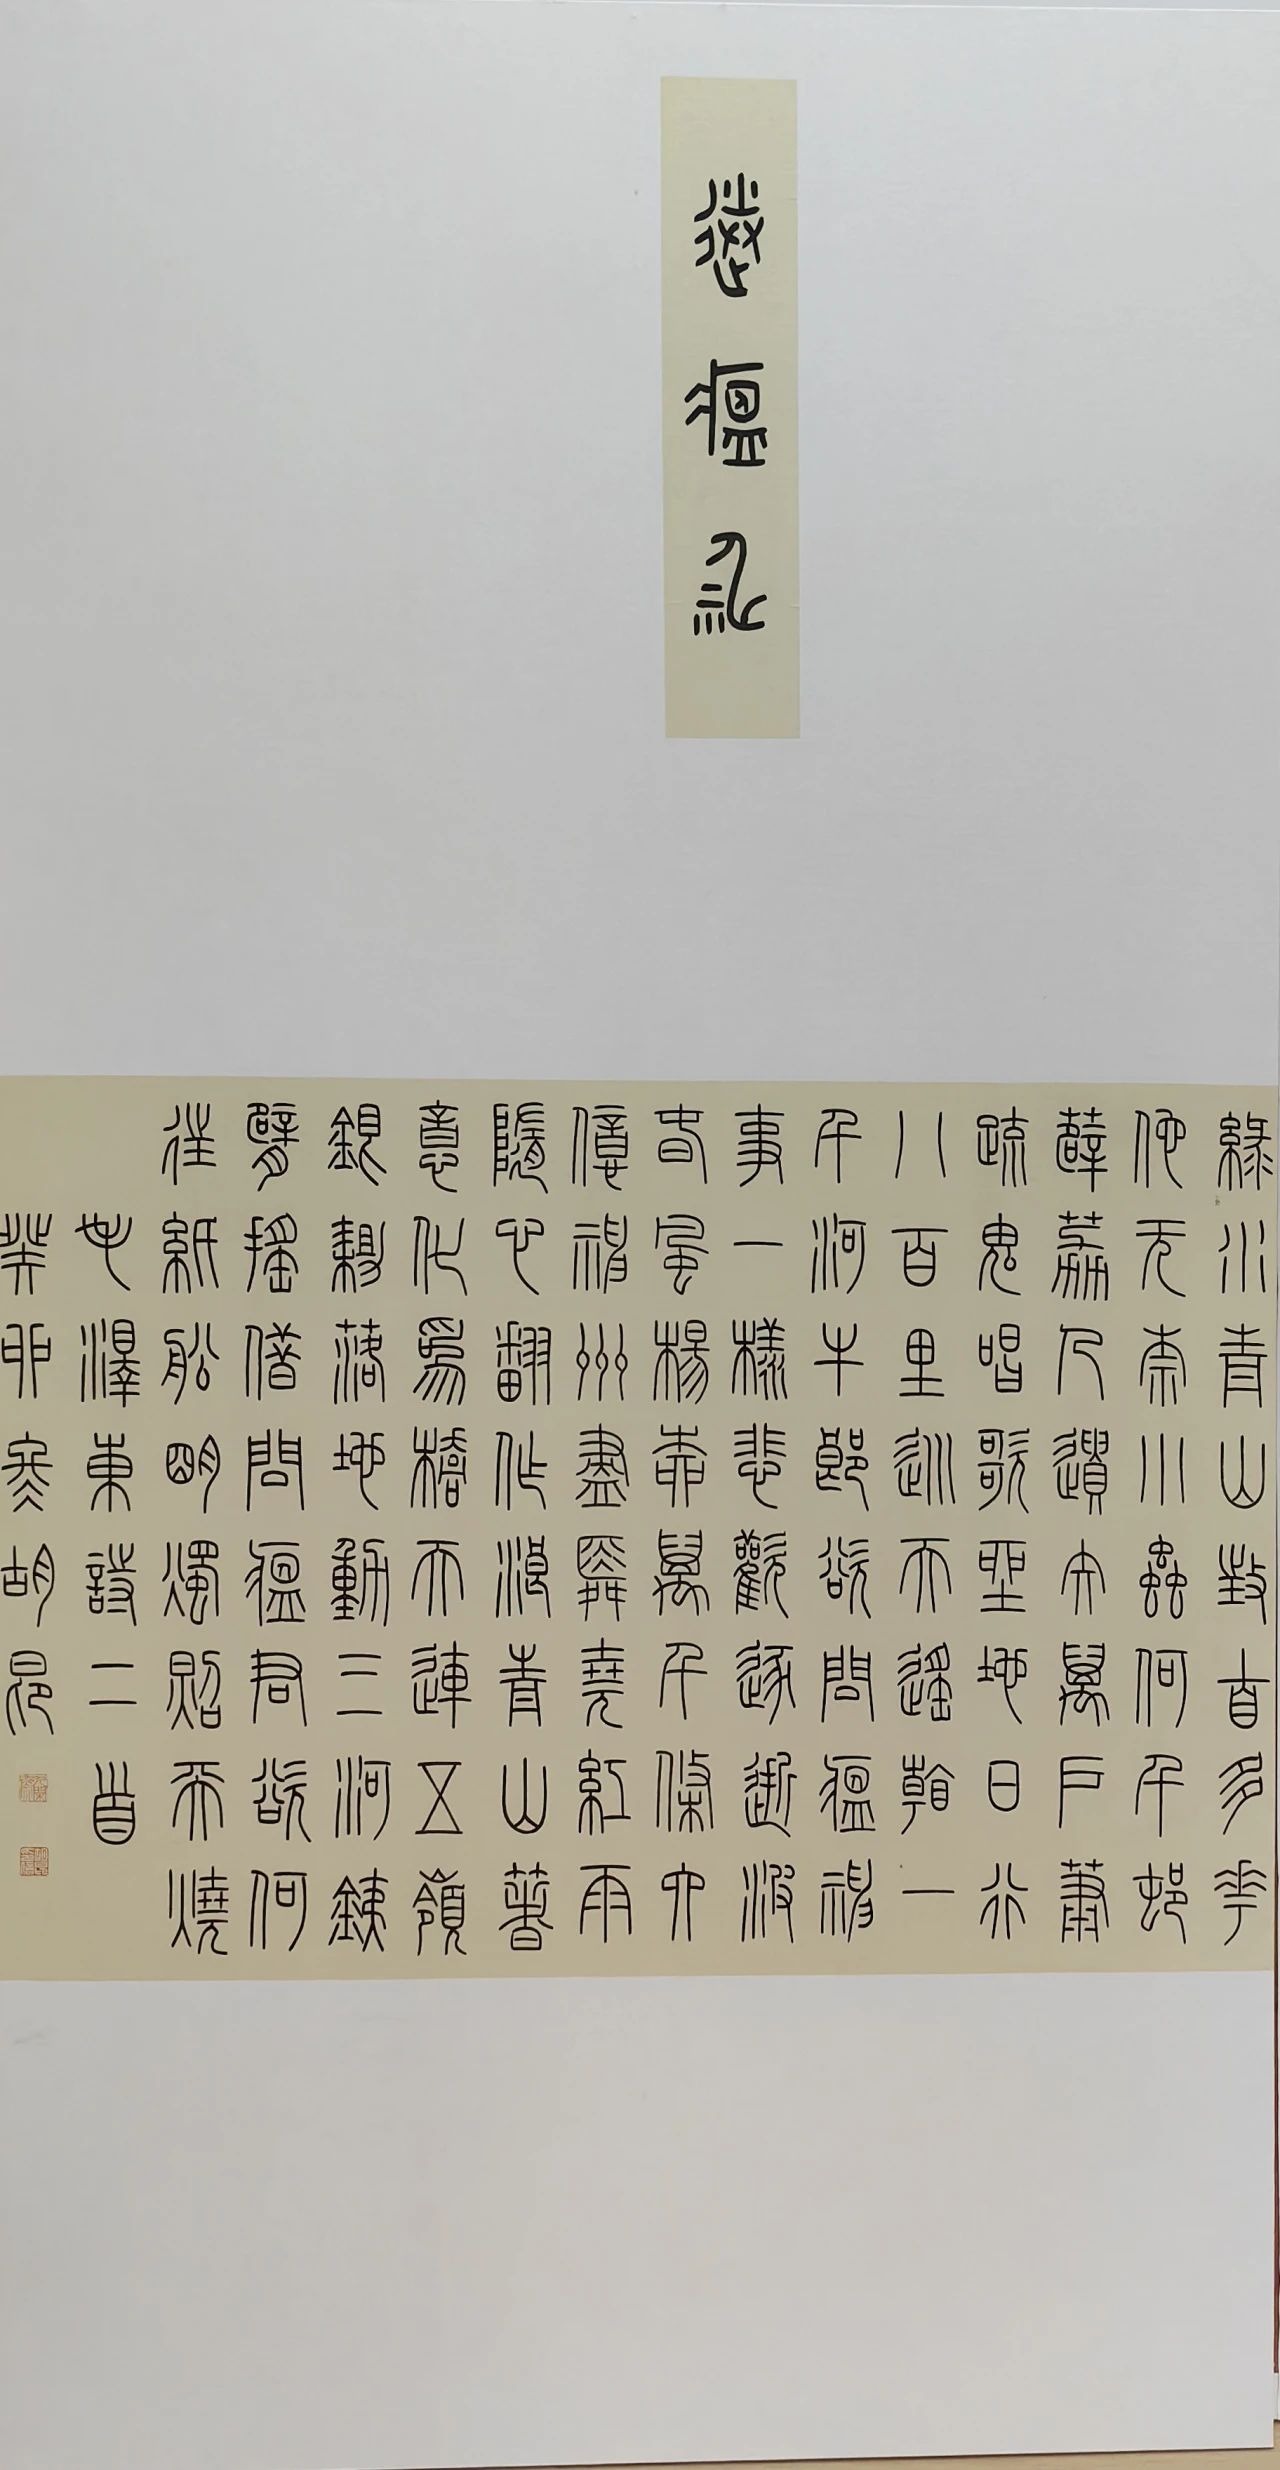 送瘟神
綠水青山枉自多華
佗无奈小蟲何千邨
薜荔人遺矢萬戶蕭
疏鬼唱歌坐地日行
八百里巡天遙看一
千河牛郎欲問瘟神
事一樣悲歡逐逝波
春風楊柳萬千條六
億神州盡舜堯紅雨
隨心翻作浪青山著
意化為橋天連五嶺
銀鋤落地動三河鐵
臂搖借問瘟君欲何
往紙船明燭照天燒
毛澤東詩二首
癸卯冬胡